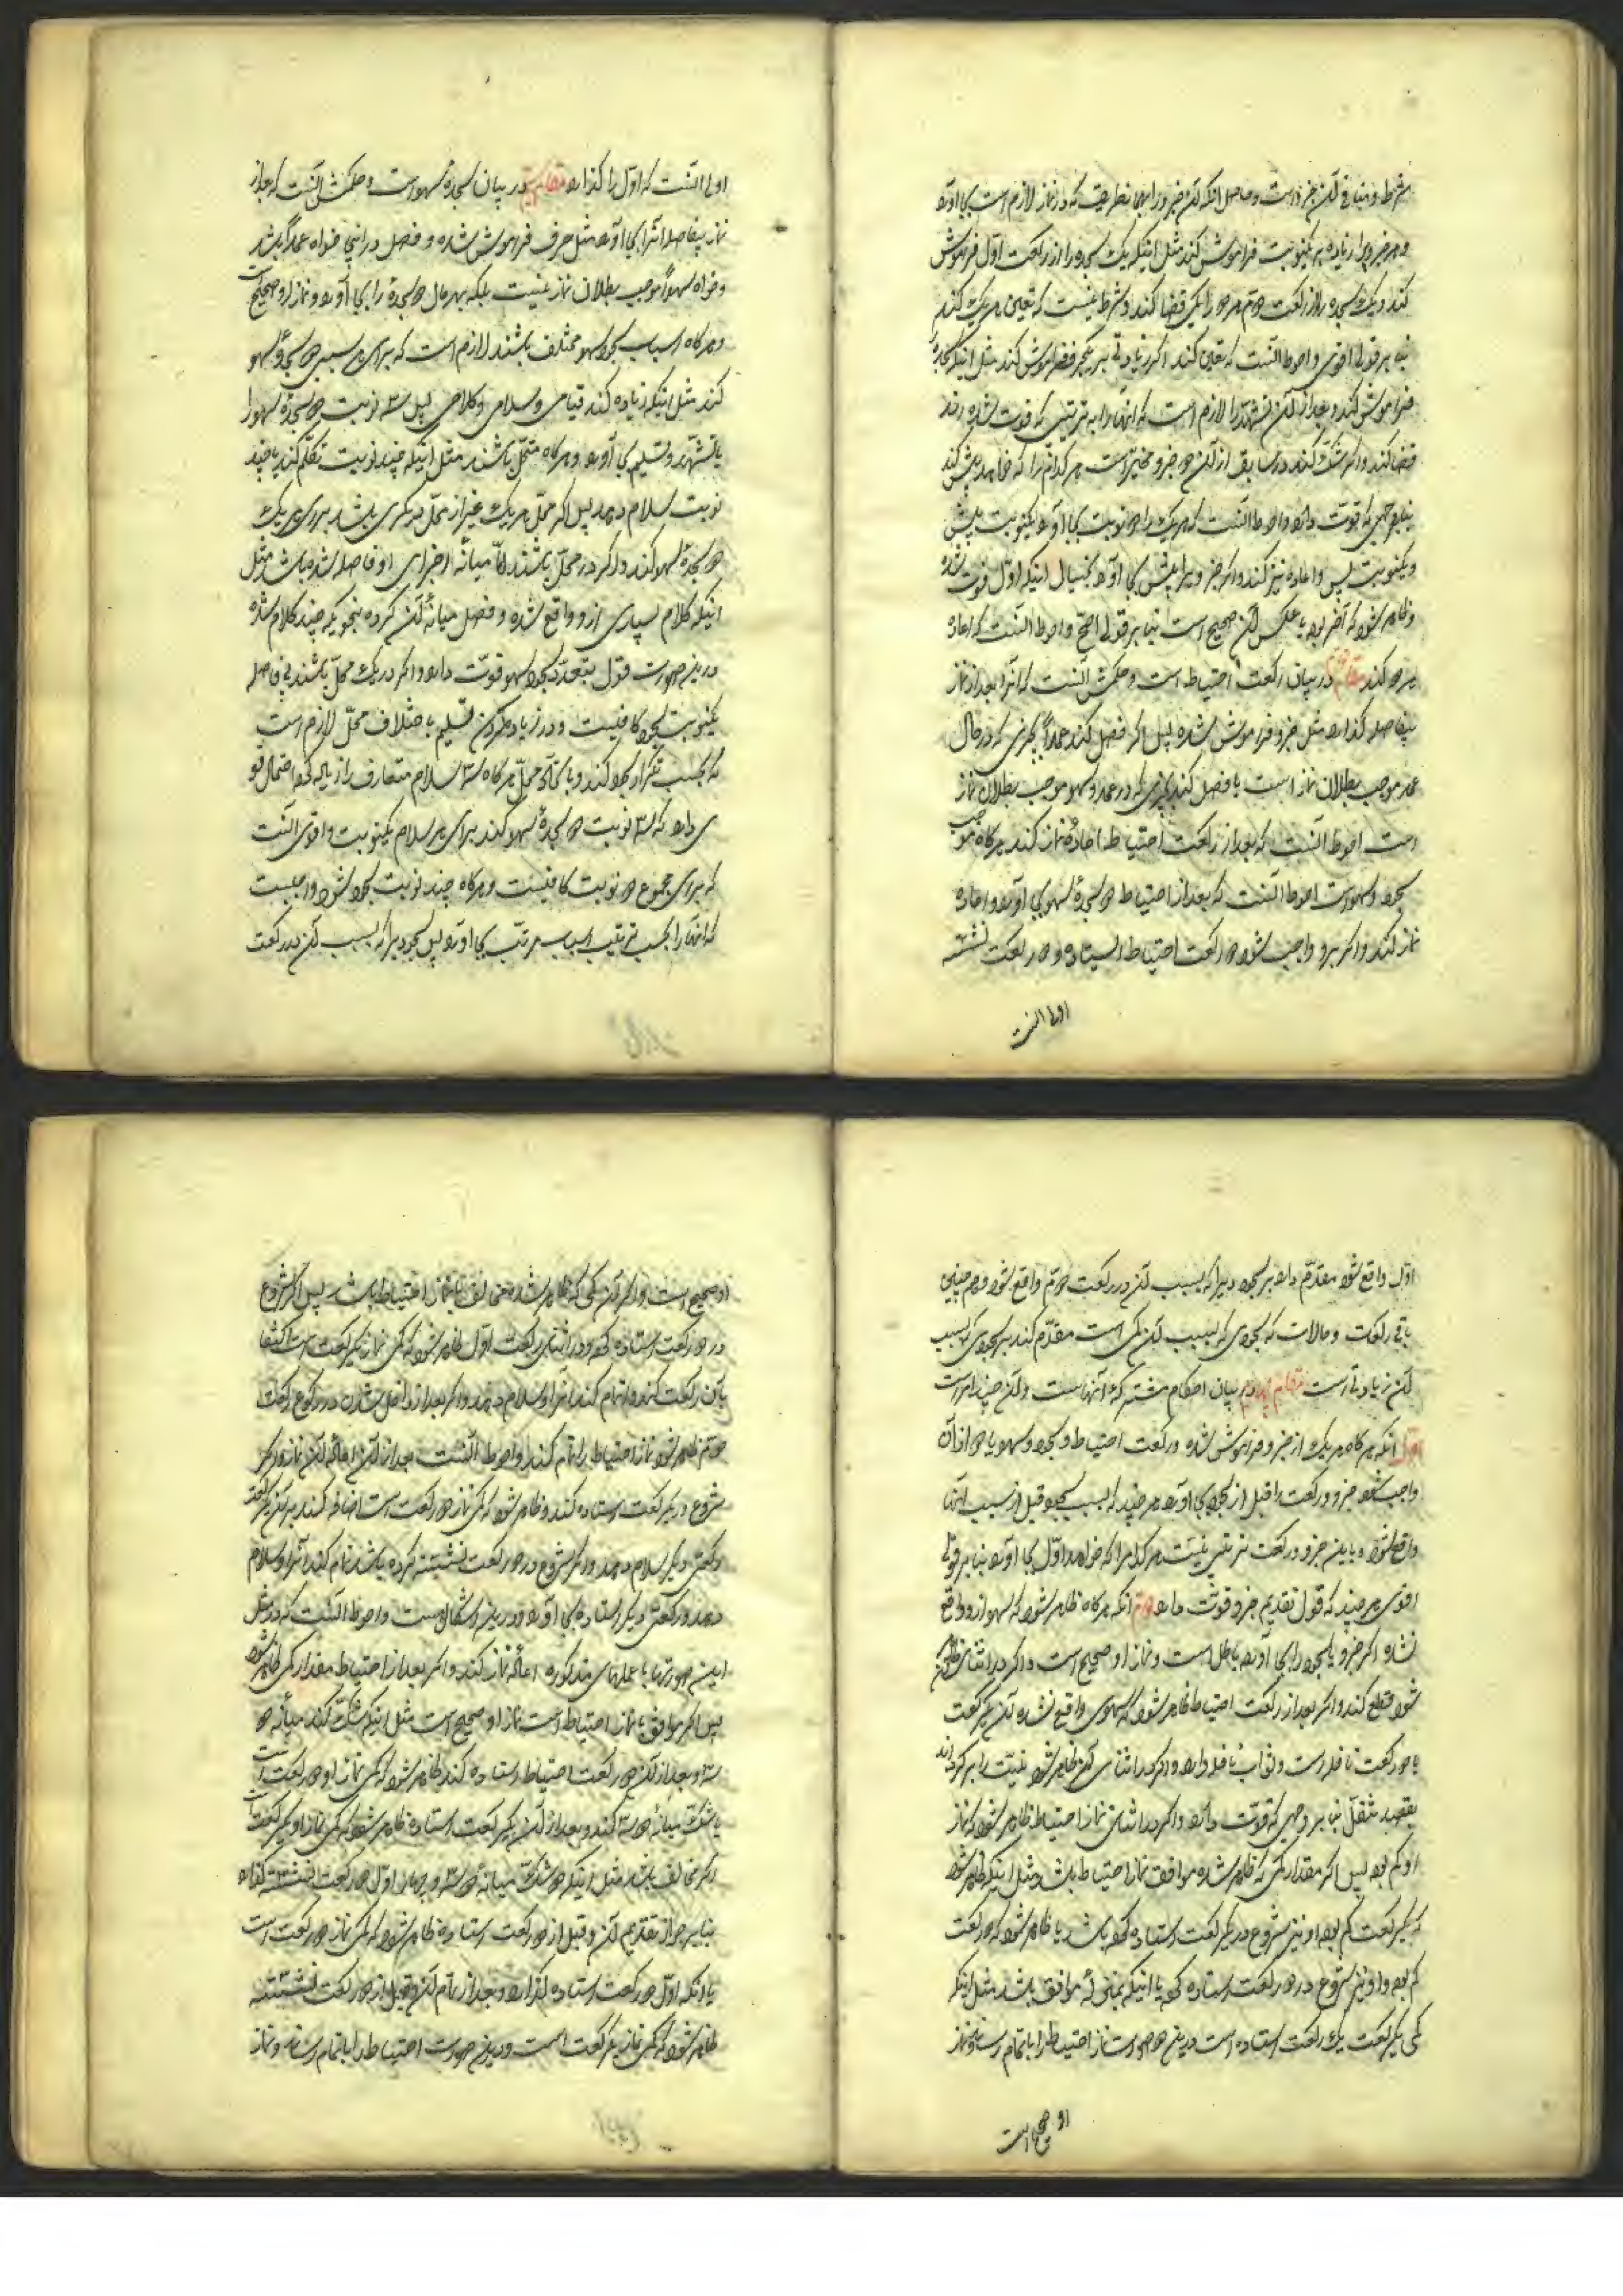 شرط و منافی آن جزو است و حاصل آنکه آن جزو را بهمان طریقی که در نماز لازم است بجا آورد
و هر جزوی را زیاده بر یکنوبت فراموش کند مثل اینکه یک سجده را از رکعت اول فراموش
کند و یک سجده را از رکعت دوم هر دو را یکی قضا کند و شرط نیست که تعیین هر یک کند
بنا بر قول اقوی و احوط آنست که تعیین کند اگر زیادتی بر یکجزو فراموش کند مثل اینکه سجدهٔ
فراموش کند و بعد از آن تشهد را لازم است که آنها را به ترتیبی که فوت شده اند
قضا کند و اگر شک کند در سابق از آن دو جزو مخیر است هر کدام را که خواهد پیش کند
بنا بر وجهی که قوت دارد و احوط آنست که هر یک را دو نوبت بجا آورد یکنوبت پیش
و یکنوبت پس و اعاده نیز کند و اگر جزوی را پیش بجا آورد بخیال اینکه اول فوت شده
و ظاهر شود که آخر بوده یا عکس آن صحیح است بنا بر قول اصح و احوط آنست که اعاده
هر دو کند مقام در بیان رکعت احتیاط است و حکمش آنست که آنرا بعد از نماز
بیفاصله گذارد مثل جزو فراموش شده پس اگر فصل کند عمداً بچیزی که در حال
عمد موجب بطلان نماز است یا فصل کند بچیزی که در عمد و سهو موجب بطلان نماز
است احوط آنست که بعد از رکعت احتیاط اعادهٔ نماز کند و هرگاه موجب
سجود سهو است احوط آنست که بعد از احتیاط دو سجدهٔ سهو بجا آورد و اعاده
نماز کند و اگر برو واجب شود دو رکعت احتیاط ایستاده و دو رکعت نشسته
اولی آنست
اولی آنست که اول را گذارد مقام در بیان سجدهٔ سهو است و حکمش آنست که بعد از
نماز بیفاصله آنرا بجا آورد مثل جزو فراموش شده و فصل در اینجا خواه عمداً باشد
و خواه سهواً موجب بطلان نماز نیست بلکه بهر حال دو سجده را بجا آورد و نماز او صحیح است
و هرگاه اسباب سجود سهو مختلف باشند لازم است که برای هر سببی دو سجدهٔ سهو
کند مثل اینکه زیاده کند قیامی و سلامی و کلامی پس سه نوبت دو سجدهٔ سهو را
با تشهد و تسلیم بجا آورد و هرگاه متحد باشند مثل اینکه چند نوبت تکلم کند یا چند
نوبت سلام دهد پس اگر محل هر یک غیر از محل دیگری باشد برای هر یک
دو سجدهٔ سهو کند و اگر در یک محل باشند اما میانهٔ اجزای او فاصله شده باشد مثل
اینکه کلام بسیاری از او واقع شده و فصل میانهٔ آن کرده بنحویکه چند کلام شده
درین صورت قول بتعدد سجود سهو قوت دارد و اگر در یک محل باشند بی فاصله
یکنوبت سجود کافیست و در زیاد کردن تسلیم با اختلاف محل لازم است
که بحسب تکرار سجود کند و با اتحاد محل هرگاه سه سلام متعارف را زیاد کند احتمال قو
ی دارد که سه نوبت دو سجدهٔ سهو کند برای هر سلام یکنوبت و اقوی آنست
که برای مجموع دو نوبت کافیست و هرگاه چند نوبت سجود شود واجبست
که آنها را بحسب ترتیب اسباب مرتب بجا آورد پس سجود یرا که بسبب آن در رکعت
اول واقع شود مقدم دارد بر سجود یرا که بسبب آن در رکعت دوم واقع شود و همچنین
باقی رکعات و حالات که سجودی که بسبب آن کمی است مقدم کند بر سجودی که بسبب
آن زیادتی است مقام چهارم در بیان احکام مشترکه آنهاست و آن چند امر است
اول آنکه هرگاه هر یک از جزو فراموش شده و رکعت احتیاط و سجود سهو یا دو از آن
واجب شود جزو و رکعت را قبل از سجود بجا آورد هر چند که بسبب سجود قبل از سبب آنها
واقع شود و ما بین جزو و رکعت ترتیبی نیست هر کدام را که خواهد اول بجا آورد بنا بر قول
اقوی هر چند که قول بتقدیم جزو قوت دارد دوم آنکه هرگاه ظاهر شود که سهو از او واقع
نشده اگر جزو یا سجود را بجا آورده باطل است و نماز او صحیح است و اگر در اثنای ظاهر
شود قطع کند و اگر بعد از رکعت احتیاط ظاهر شود که سهوی واقع نشده آن یکرکعت
یا دو رکعت نافله است و ثواب نافله دارد و اگر در اثنای آن ظاهر شود نیت را برگرداند
بقصد تنفل بنا بر وجهی که قوت دارد و اگر در اثنای نماز احتیاط ظاهر شود که نماز
او کم بوده پس اگر مقدار کمی که ظاهر شده موافق نماز احتیاط باشد مثل اینکه ظاهر شود
که یکرکعت کم بوده و نیز شروع در یکرکعت ایستاده کرده باشد یا ظاهر شود که دو رکعت
کم بوده و او نیز شروع در دو رکعت ایستاده کرده یا اینکه بمنزلهٔ موافق باشد مثل اینکه
کمی یکرکعت یک رکعت ایستاده است درین دو صورت نماز احتیاط را باتمام رساند و نماز
او صحیح است
او صحیح است و اگر آن کمی که ظاهر شد مخالف با نماز احتیاط باشد پس اگر شروع
در دو رکعت ایستاده کرده و در اثنای رکعت اول ظاهر شود که کمی نماز یکرکعت است اکتفا
بآن رکعت کند و اتمام کند آنرا و سلام دهد و اگر بعد از داخل شدن در رکوع رکعت
دوم ظاهر شود نماز احتیاط را تمام کند و احوط آنست بعد از آن اعادهٔ آن نماز و اگر
شروع در یکرکعت ایستاده کند و ظاهر شود که کمی نماز دو رکعت است اضافه کند بر آن یکرکعت
رکعتی دیگر و سلام دهد و اگر شروع در دو رکعت نشسته کرده باشد تمام کند آنرا و سلام
دهد و رکعتی دیگر ایستاده بجا آورد و درین اشکالست و احوط آنست که در مثل
این صورتها با عملهای مذکوره اعادهٔ نماز کند و اگر بعد از احتیاط مقدار کمی ظاهر شود
پس اگر موافق با نماز احتیاط است نماز او صحیح است مثل اینکه شک کند میانهٔ دو
و سه و بعد از آن دو رکعت احتیاط ایستاده کند ظاهر شود که کمی نماز او دو رکعت است
یا شک میانهٔ دو و سه کند و بعد از آن یکرکعت ایستاده ظاهر شود که کمی نماز او یکرکعت است
و اگر مخالف باشد مثل اینکه در شک میانهٔ دو و سه و چهار اول دو رکعت نشسته گذارد
بنا بر جواز تقدیم آن و قبل از دو رکعت ایستاده ظاهر شود که کمی نماز دو رکعت است
یا آنکه اول دو رکعت ایستاده گذارد و بعد از تمام آن و قبل از دو رکعت نشسته
ظاهر شود که کمی نماز یکرکعت است و درین صورت احتیاط را باتمام رساند و نماز